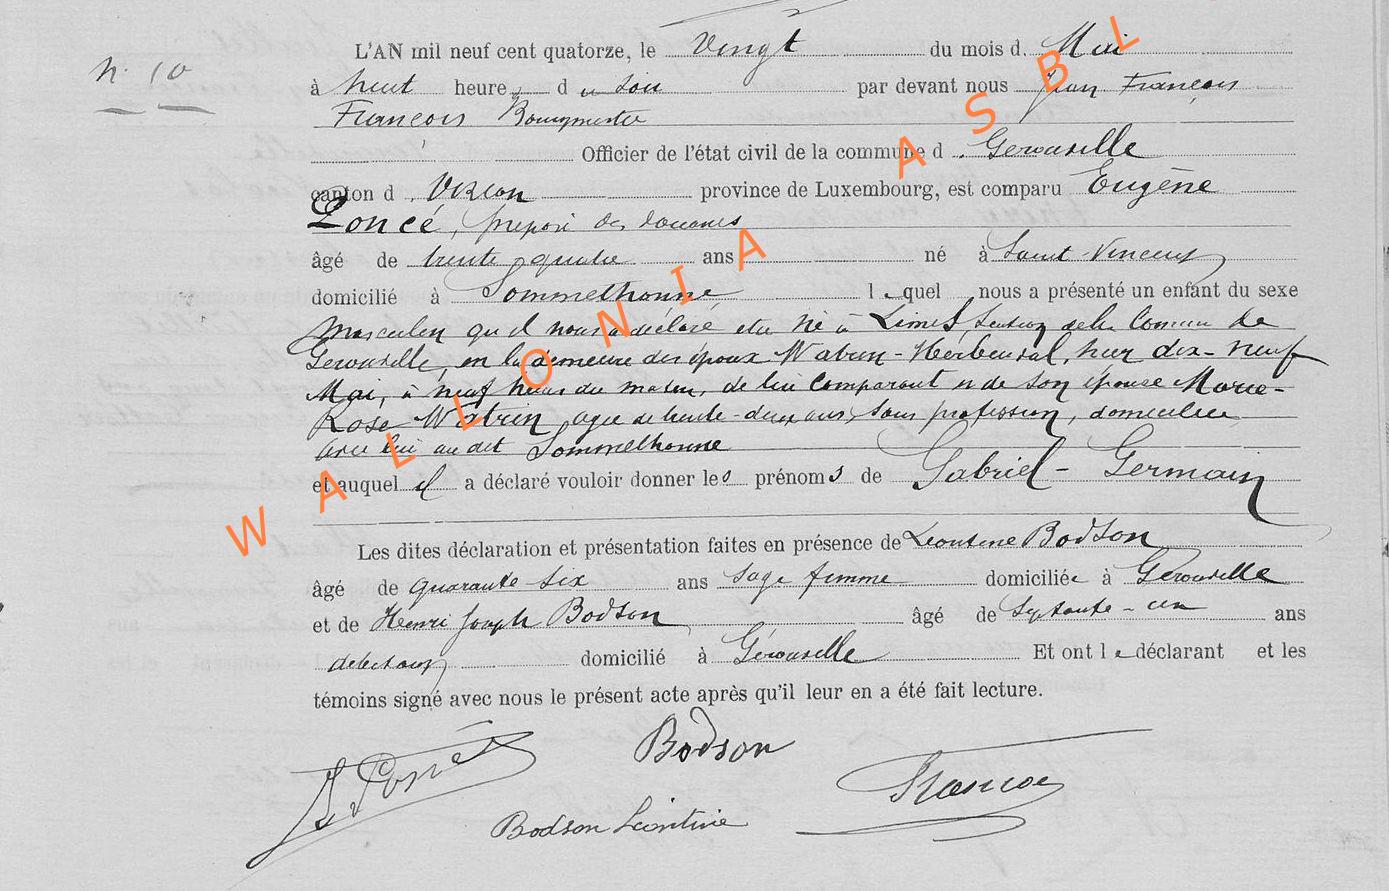 N. 10
L'AN mil neuf cent quatorze, le Vingt du mois d. Mai
à huit heure s du soir par devant nous Jean François
François Bourgmestre
Officier de l'état civil de la commune d. Gerouville
canton d. Virton province de Luxembourg, est comparu Eugène
Poncé, préposé des douanes
âgé de trente quatre ans né à Saint-Vincent
domicilié à Sommethonne, lequel nous a présenté un enfant du sexe
masculin qu'il nous a déclaré etre né à Limes section de la Commune de
Gerouville, en la demeure des époux Watrin-Herbeuval, hier dix-neuf
Mai, à neuf heures du matin, de lui comparant et de son épouse Marie-
Rose Watrin, agée de trente-deux ans, sans profession, domiciliée
avec lui au dit Sommethonne
et auquel il a déclaré vouloir donner les prénoms de Gabriel-Germain
Les dites déclaration et présentation faites en présence de Léontine Bodson
âgé de quarante six ans sage femme domiciliée à Gérouville
et de Henri Joseph Bodson âgé de Septante-un ans
domicilié à Gérouville Et ont le déclarant et les
témoins signé avec nous le présent acte après qu'il leur en a été fait lecture.
Bodson
E Poncé François
Bodson Léontine
WALLONIA ASBL